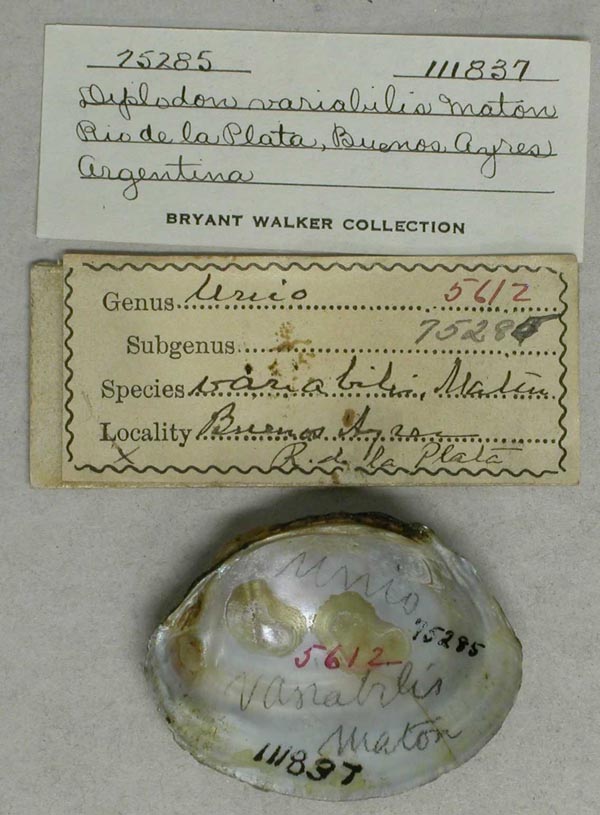 75285 111837
Diplodon variabilis Maton
Rio de la Plata, Buenos Ayres
Argentina
BRYANT WALKER COLLECTION
Genus Unio 5612
Subgenus 75285
Species variabilis, Maton
Locality Buenos Ayres
R. de la Plata
X
Unio
75285
5612
variabilis
Maton
111837